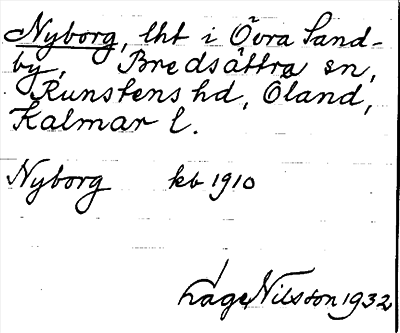 Nyborg, lht i Övra Sand-
by, Bredsättra sn,
Runstens hd, Öland,
Kalmar l.
Nyborg kb 1910
Lage Nilsson 1932